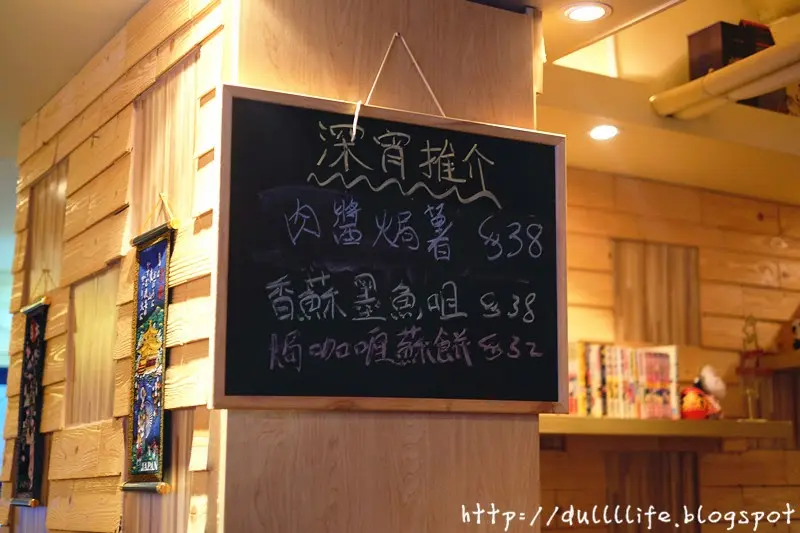 深宵推介
肉醬焗薯 $38
香蘇墨魚咀 $38
焗咖喱蘇餅 $32
JAPAN
http://dullllife.blogspot